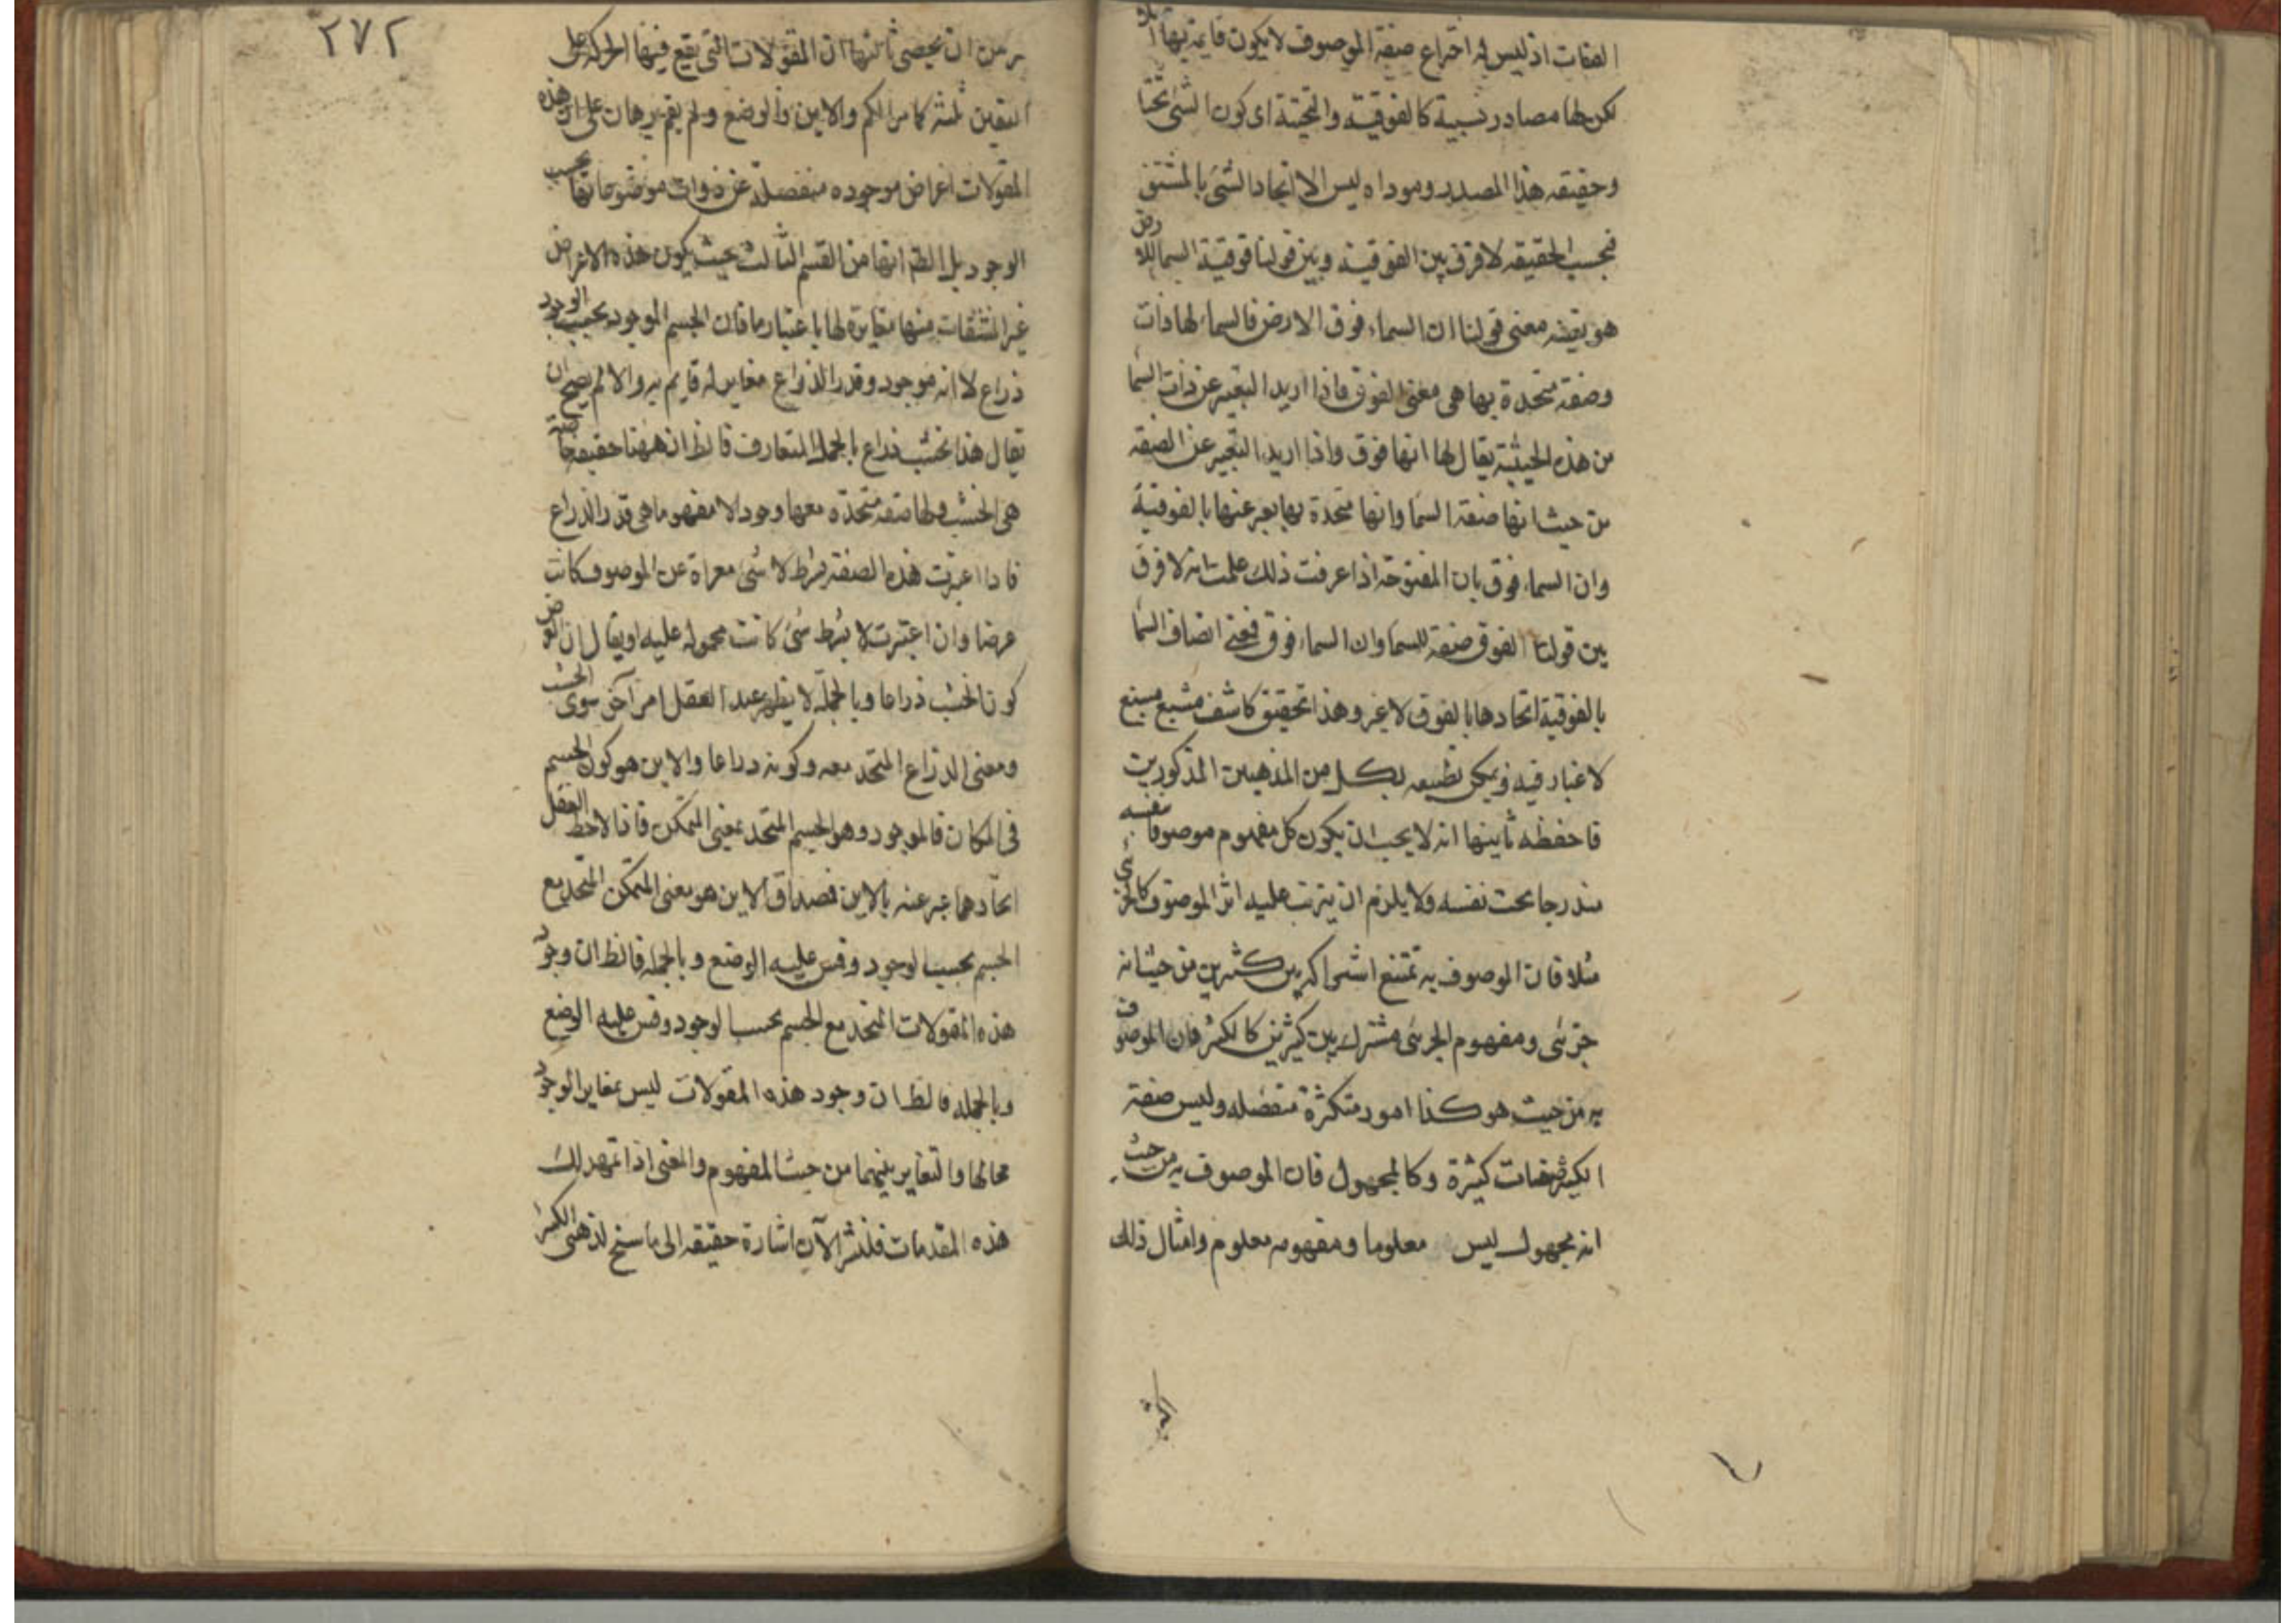 الصفات اذ ليس له اختراع صفة الموصوف لا يكون قايمة بها
لكن لها مصادر نسبية كالفوقية والتحتية اى كون الشئ تحتا
وحقيقه هذا المصدر وموداه ليس الا اتحاد الشئ بالمشتق
فبحسب الحقيقه لا فرق بين الفوقية وبين قولنا فوقية السما للارض
هو بعينه معنى قولنا ان السماء فوق الارض فالسما لها ذات
وصفة متحدة بها هى معنى الفوق فاذا اريد التعبير عن ذات السما
من هذه الحيثية يقال لها انها فوق واذا اريد التعبير عن الصفة
من حيث انها صفة السما وانها متحدة بها يعبر عنها بالفوقية
وان السماء فوق بان المفتوحة اذا عرفت ذلك علمت انه لا فرق
بين قولنا الفوق صفة للسما وان السماء فوق فمعنى اتصاف السما
بالفوقية اتحادها بالفوق لا غير وهذا تحقيق كاشف مشبع
لا غبار فيه ويمكن تطبيقه بكل من المذهبين المذكورين
فاحفظه ثانيها انه لا يجب ان يكون كل مفهوم موصوفا بنفسه
مندرجا تحت نفسه ولا يلزم ان يترتب عليه اثر الموصوف كالجزئى
مثلا فان الموصوف به تمتنع اشتراكه بين كثيرين من حيث انه
جزئى ومفهوم الجزئى مشترك بين كثيرين كالكثير فان الموصوف
به من حيث هو كذا امور متكثرة منفصله وليس صفة
الكثير صفات كثيرة وكالمجهول فان الموصوف به من حيث
انه مجهول ليس معلوما ومفهومه معلوم وامثال ذلك
٢٧٢
من ان يحصى ثالثها ان المقولات التى يقع فيها الحركة على
اليقين ثلثة كما مر الكم والاين والوضع ولم يقم برهان على ان هذه
المقولات اعراض موجوده منفصلة عن ذوات موضوعاتها بحسب
الوجود بل الظ انها من القسم الثالث بحيث يكون هذه الاعراض
غير المشتقات منها مغايرة لها باعتبار ما فان الجسم الموجود بحسب الوجود
ذراع لا انه موجود وقدر الذراع مغاير له قايم به والا لم يصح ان
يقال هذا الخشب ذراع بالحمل المتعارف فالظ ان ههنا حقيقة خاصة
هى الخشب ولها صفة متحدة معها وجودا لا مفهوما هى قدر الذراع
فاذا اعتبرت هذه الصفة بشرط لا شئ معراة عن الموصوف كانت
عرضا وان اعتبرت لا بشرط شئ كانت محمولة عليه او يقال ان العرض
كون الخشب ذراعا وبالجملة لا يظهر عند العقل امر آخر سوى الخشب
ومعنى الذراع المتحد معه وكونه ذراعا والاين هو كون الجسم
فى المكان فالموجود هو الجسم المتحد بمعنى المتمكن فاذا لاحظ العقل
اتحادهما عبر عنه بالاين فمصداق الاين هو معنى المتمكن المتحد مع
الجسم بحسب الوجود وقس عليه الوضع وبالجملة فالظ ان وجود
هذه المقولات المتحد مع الجسم بحسب الوجود وقس عليه الوضع
وبالجملة فالظ ان وجود هذه المقولات ليس بمغاير الوجود
محالها والتغاير بينهما من حيث المفهوم والمعنى اذا تمهد لك
هذه المقدمات فلنشر الآن اشارة حقيقة الى ما سنح لذهنى الكسير